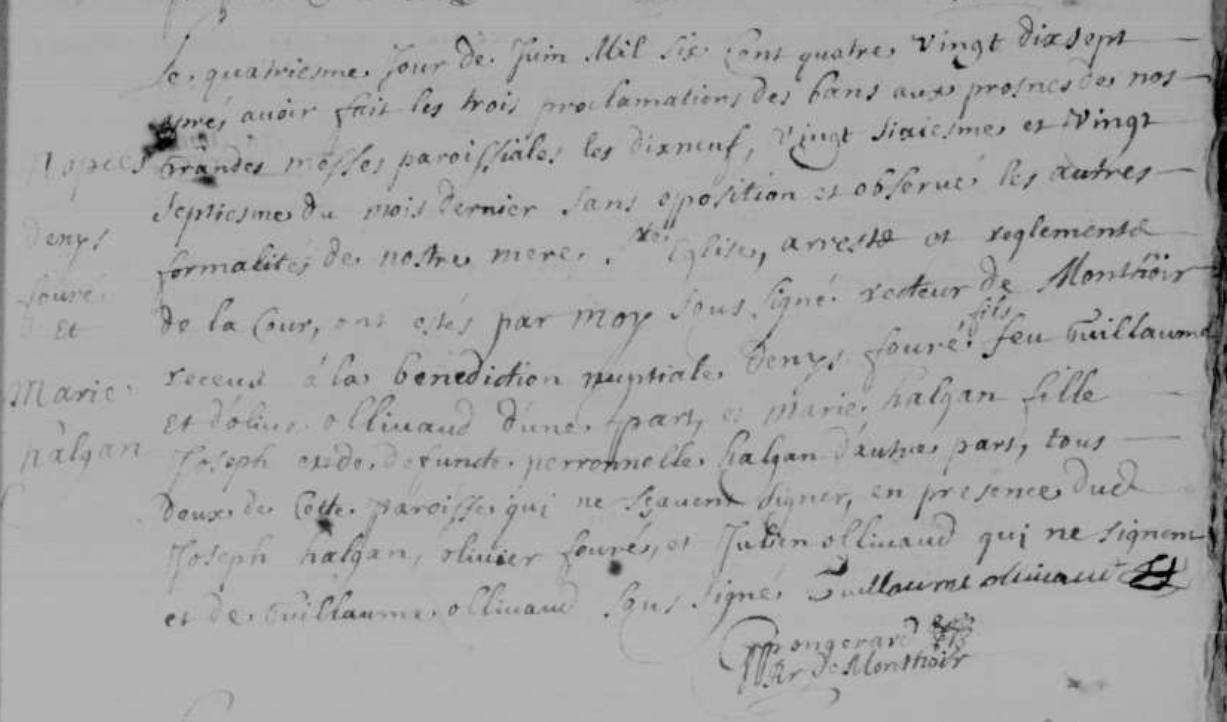 le quatriesme Jour de Juin Mil six cent quatre vingt dixsept
aprés auoir fait les trois proclamations des bans aux prosnes de nos
Grandes messes paroissiales les dixneuf, vingt sixiesme et vingt
septiesme du mois dernier sans opposition et obserué les autres
formalités de nostre mere Ste Eglise, arrests et reglements
de la Cour, ont estés par moy sous signé recteur de Monthoir
receus á la benediction nuptiale Denys fouré fils feu Guillaume
et ollivaud d'une part, et marie halgan fille
Joseph et de defuncte perronnelle halgan d'autre part, tous
deux de Cette paroisse qui ne sçauent signer, en presence dud
Joseph halgan, oliuier fouré, et Julien olliuaud qui ne signent
et de Guillaume olliuaud sous signé Guillaume oliuaud
Rr de Monthoir
Espces
Denys
fouré
Et
Marie
halgan